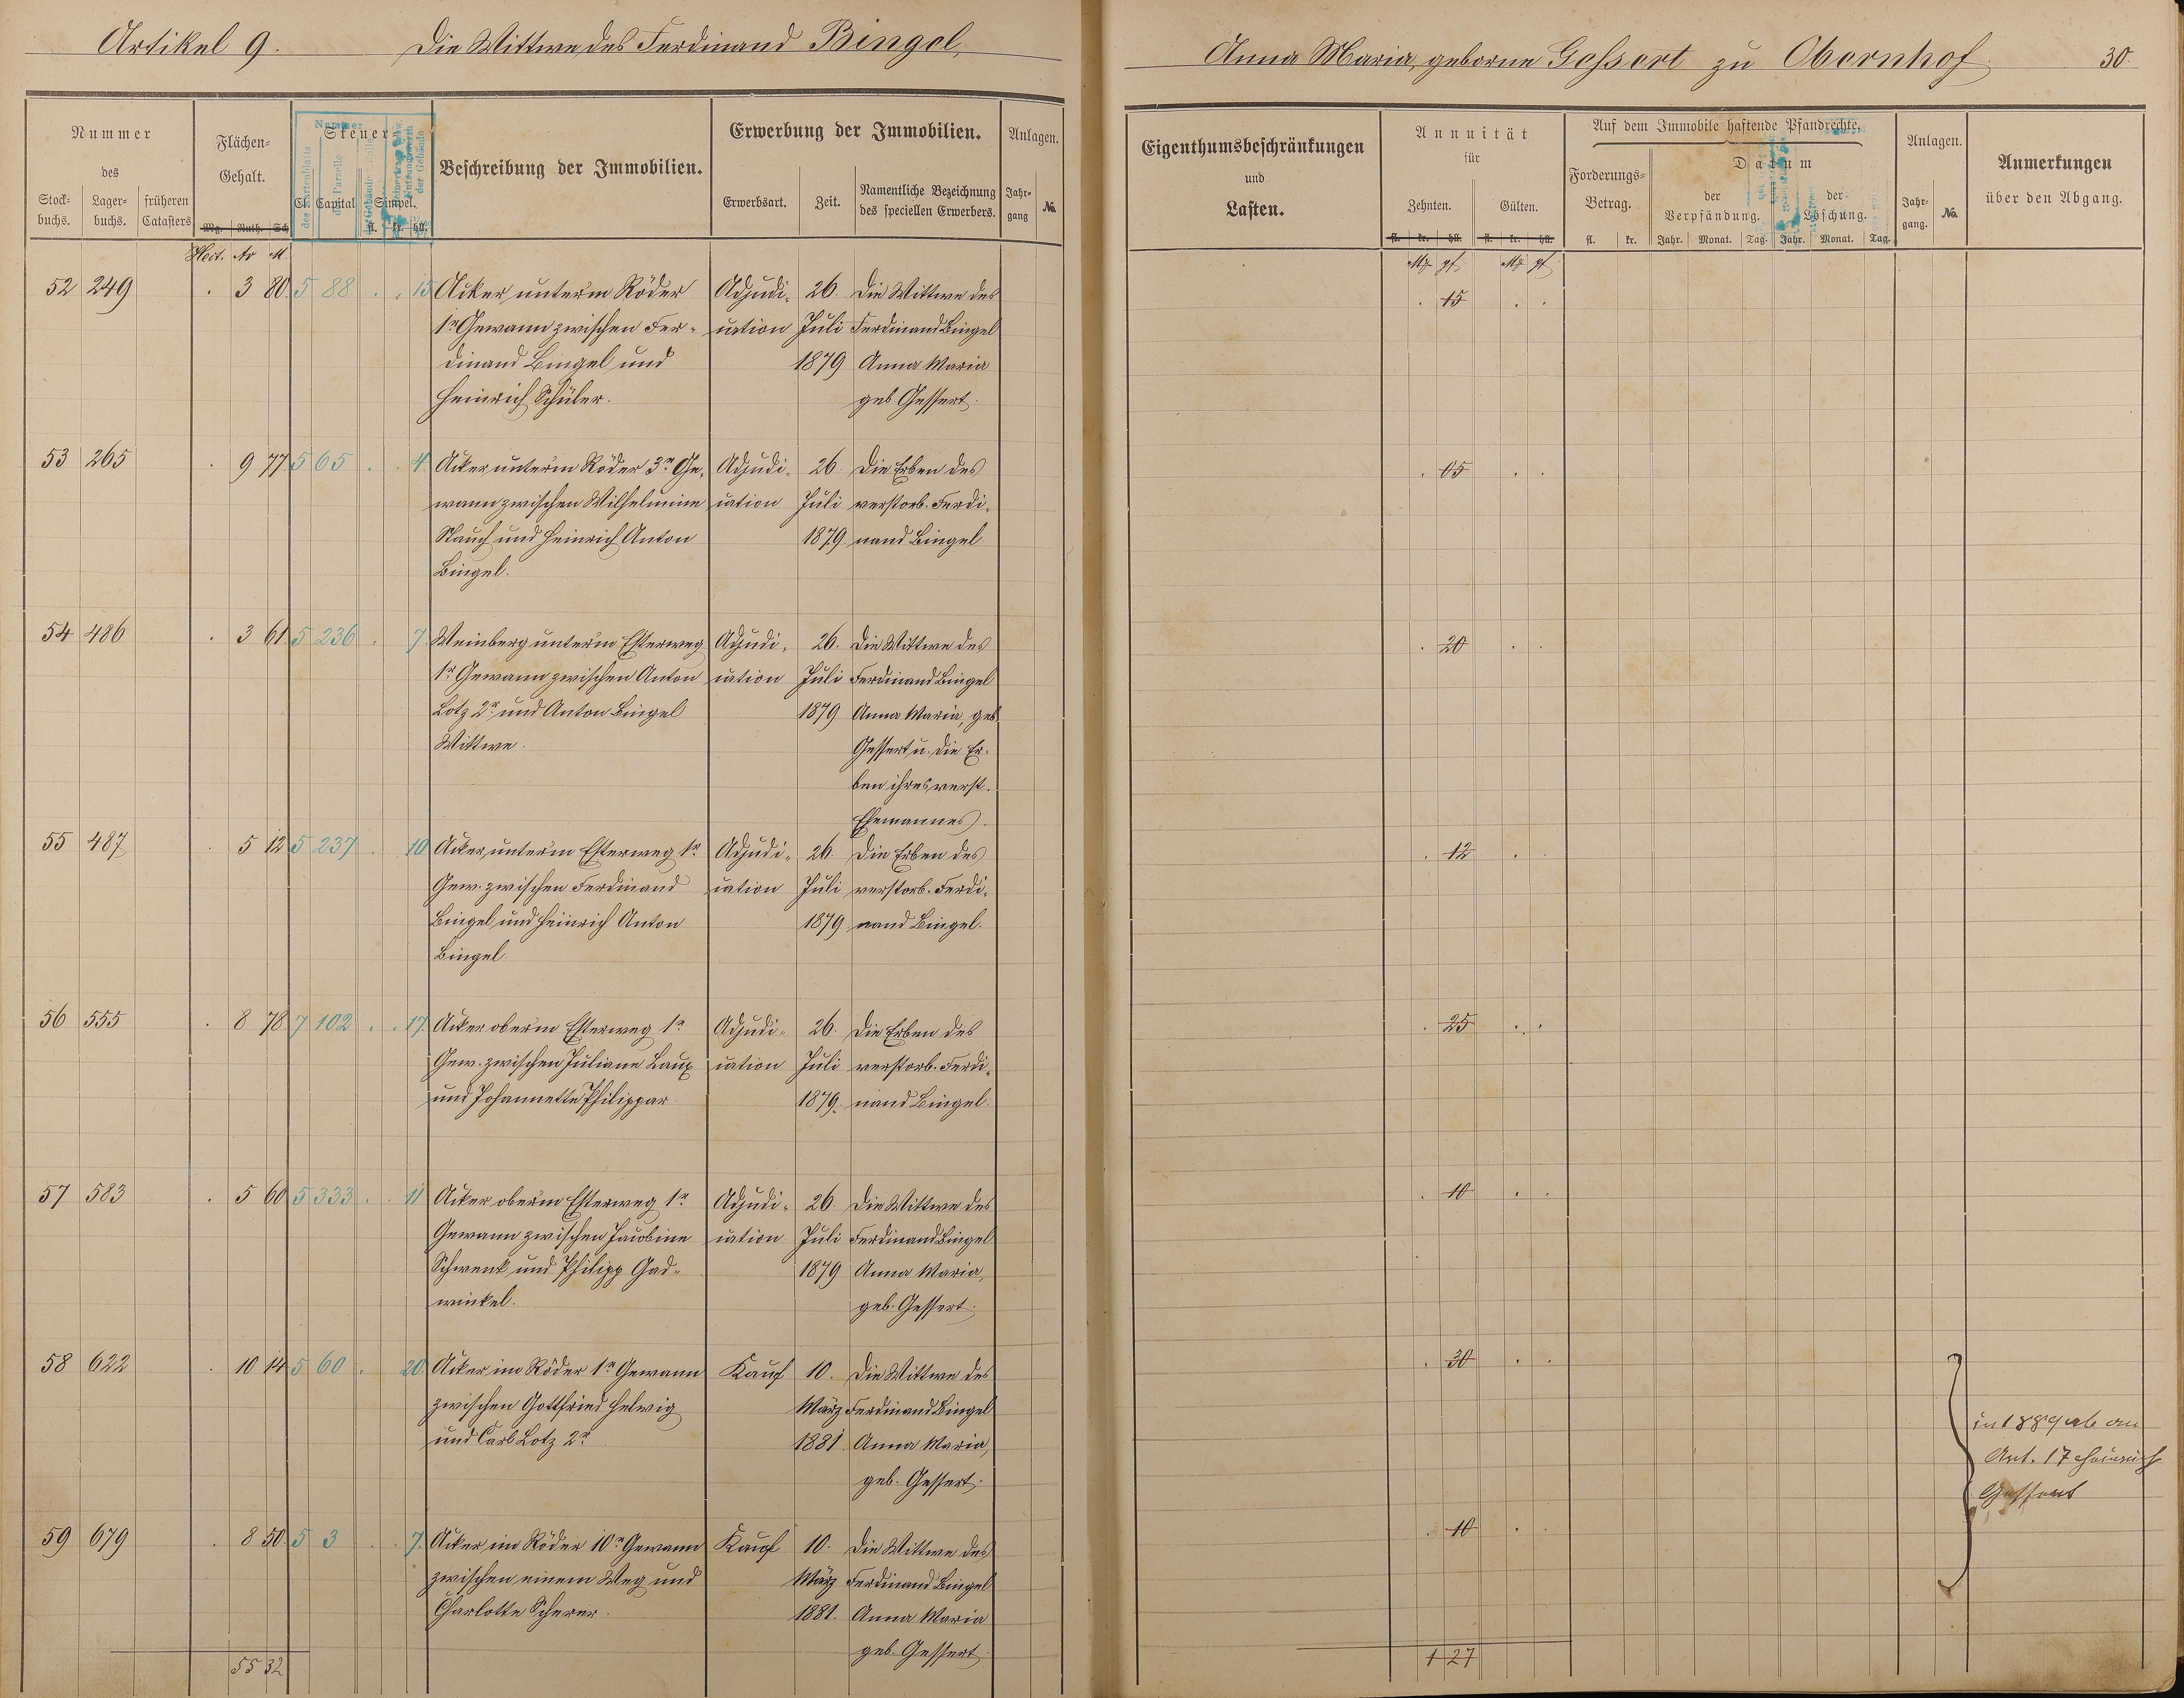 Artikel 9. Die Wittwe des Ferdinand Bingel,
Anna Maria, geborne Gessert zu Obernhof 30.
Nummer des
Stock-buchs. Lager-buchs. früheren Catasters
Flächen-Gehalt.
Mg. Ruth. Sch
Steuer-
Cl. Capital Simpel.
fl. kr. hll.
Nummer
des Kartenblatts
der Parzelle
Beschreibung der Immobilien.
Erwerbung der Immobilien.
Erwerbsart. Zeit. Namentliche Bezeichnung des speciellen Erwerbers.
Anlagen.
Jahr-gang No.
Eigenthumsbeschränkungen
und
Lasten.
Annuität
für
Zehnten. Gülten.
fl. kr. hll. fl. kr. hll.
Auf dem Immobile haftende Pfandrechte.
Forderungs-Betrag.
fl. kr.
Datum
der Verpfändung. der Löschung.
Jahr. Monat. Tag. Jahr. Monat. Tag.
Anlagen.
Jahr-gang. No.
Anmerkungen
über den Abgang.
Hect. Ar M.
M. pf. M. pf.
52 249 . 3 80 5 88 . . 15 Acker unterm Röder Adjudi- 26. Die Wittwe des . 15 . .
1r Gewann zwischen Fer- cation Juli Ferdinand Bingel
dinand Bingel und 1879 Anna Maria
Heinrich Schüler. geb. Gessert.
53 265 . 9 77 5 65 . . 4. Acker unterm Röder 3r Ge- Adjudi- 26. Die Erben des . 05 . .
wann zwischen Wilhelmine cation Juli verstorb. Ferdi-
Rauch und Heinrich Anton 1879. nand Bingel
Bingel.
54 486 . 3 61 5 236 . 7 Weinberg unterm Esterweg Adjudi- 26. Die Wittwe des . 20 . .
1r Gewann zwischen Anton cation Juli Ferdinand Bingel
Lotz 2r und Anton Bingel 1879 Anna Maria, geb
Wittwe. Gessert u. die Er-
ben ihres verst.
Ehemannes.
55 487 . 5 12 5 237 . 10 Acker unterm Esterweg 1r Adjudi- 26. Die Erben des . 12 .
Gew. zwischen Ferdinand cation Juli verstorb. Ferdi-
Bingel und Heinrich Anton 1879 nand Bingel.
Bingel.
56 555 . 8 78 7 102 . . 17. Acker oberm Esterweg 1r Adjudi- 26. Die Erben des . 25 . .
Gew. zwischen Juliane Laux cation Juli verstorb. Ferdi-
und Johannette Philippar. 1879. nand Bingel.
57 583 . 5 60 5 333 . . 11 Acker oberm Esterweg 1r Adjudi- 26. Die Wittwe des . 10 . .
Gewann zwischen Jacobine cation Juli Ferdinand Bingel
Schwenk und Philipp Gad- 1879 Anna Maria,
winkel. geb. Gessert.
58 622 . 10 14 5 60 . 20. Acker im Röder 1r Gewann Kauf 10. Die Wittwe des . 30 . .
zwischen Gottfried Helwig März Ferdinand Bingel
und Carl Lotz 2r 1881. Anna Maria,
geb. Gessert.
in 1889 ab an
Art. 17 Heinrich
Gessert
59 679 . 8 50. 5 3 . . 7. Acker im Röder 10r Gewann Kauf 10. Die Wittwe des . 10 . .
zwischen einem Weg und März Ferdinand Bingel
Charlotte Scherer. 1881. Anna Maria
geb. Gessert.
55 32
1 27